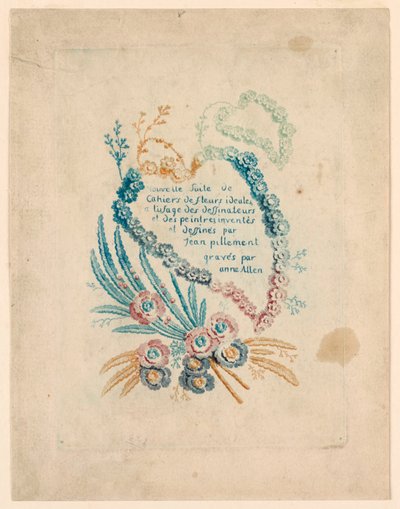 Nouvelle Suite de
Cahiers de fleurs ideales
a l'usage des dessinateurs
et des peintres inventés
et dessinés par
Jean pillement
gravés par
anne Allen